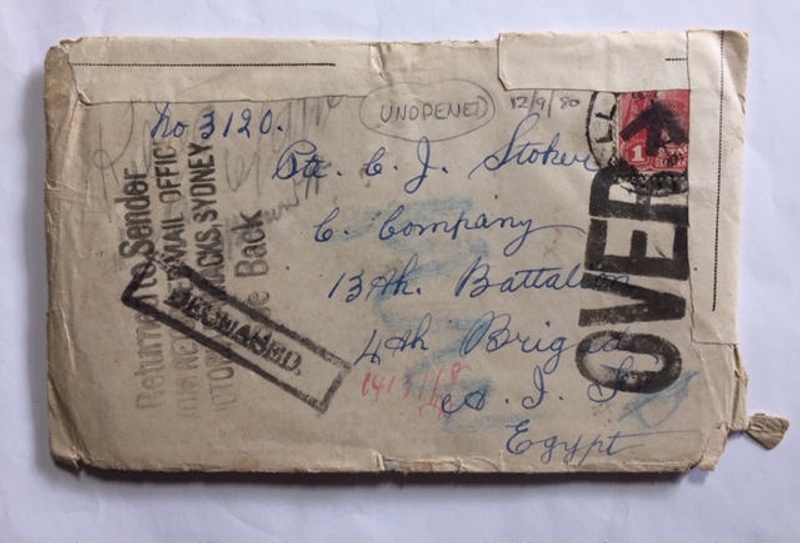 UNOPENED 12/9/80
No 3120.
Pte. C. J. Stoker
C. Company
13th. Battalion
4th Brigade
A. I. F.
Egypt
OVER
1
Returned to Sender
MAIL OFFIC
RACKS, SYDNEY
Back
DECEASED.